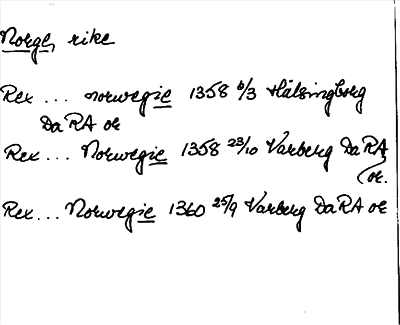 Norge, rike
Rex ... norwegie 1358 6/3 Hälsingborg
DaRA or
Rex ... Norwegie 1358 23/10 Varberg DaRA
or.
Rex ... Norwegie 1360 25/9 Varberg DaRA or